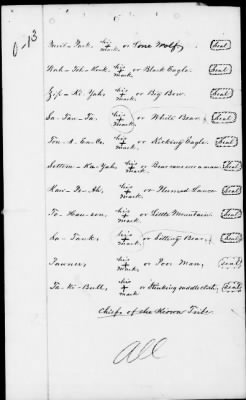 0-13
Quiel-Park, his + mark or Lone Wolf, (Seal)
Wah-Toh-Konk, his + mark or Black Eagle. (Seal)
Zip-Ki-Yah, his + mark or Big Bow. (Seal)
Sa-Tan-Ta, his + mark or White Bear. (Seal)
Ton-A-En-Co, his + mark or Kicking Eagle. (Seal)
Settem-Ka-Yah, his + mark or Bear runs over a man (Seal)
Kaw-Pe-Ah, his + mark or Plumed Lance (Seal)
To-Hau-son, his + mark or Little Mountain (Seal)
Sa-Tank, his + mark or Sitting Bear, (Seal)
Pawnee, his + mark or Poor Man, (Seal)
Ta-Ki-Bull, his + mark or Stinking Saddle cloth, (Seal)
Chiefs of the Kiowa Tribe.
All